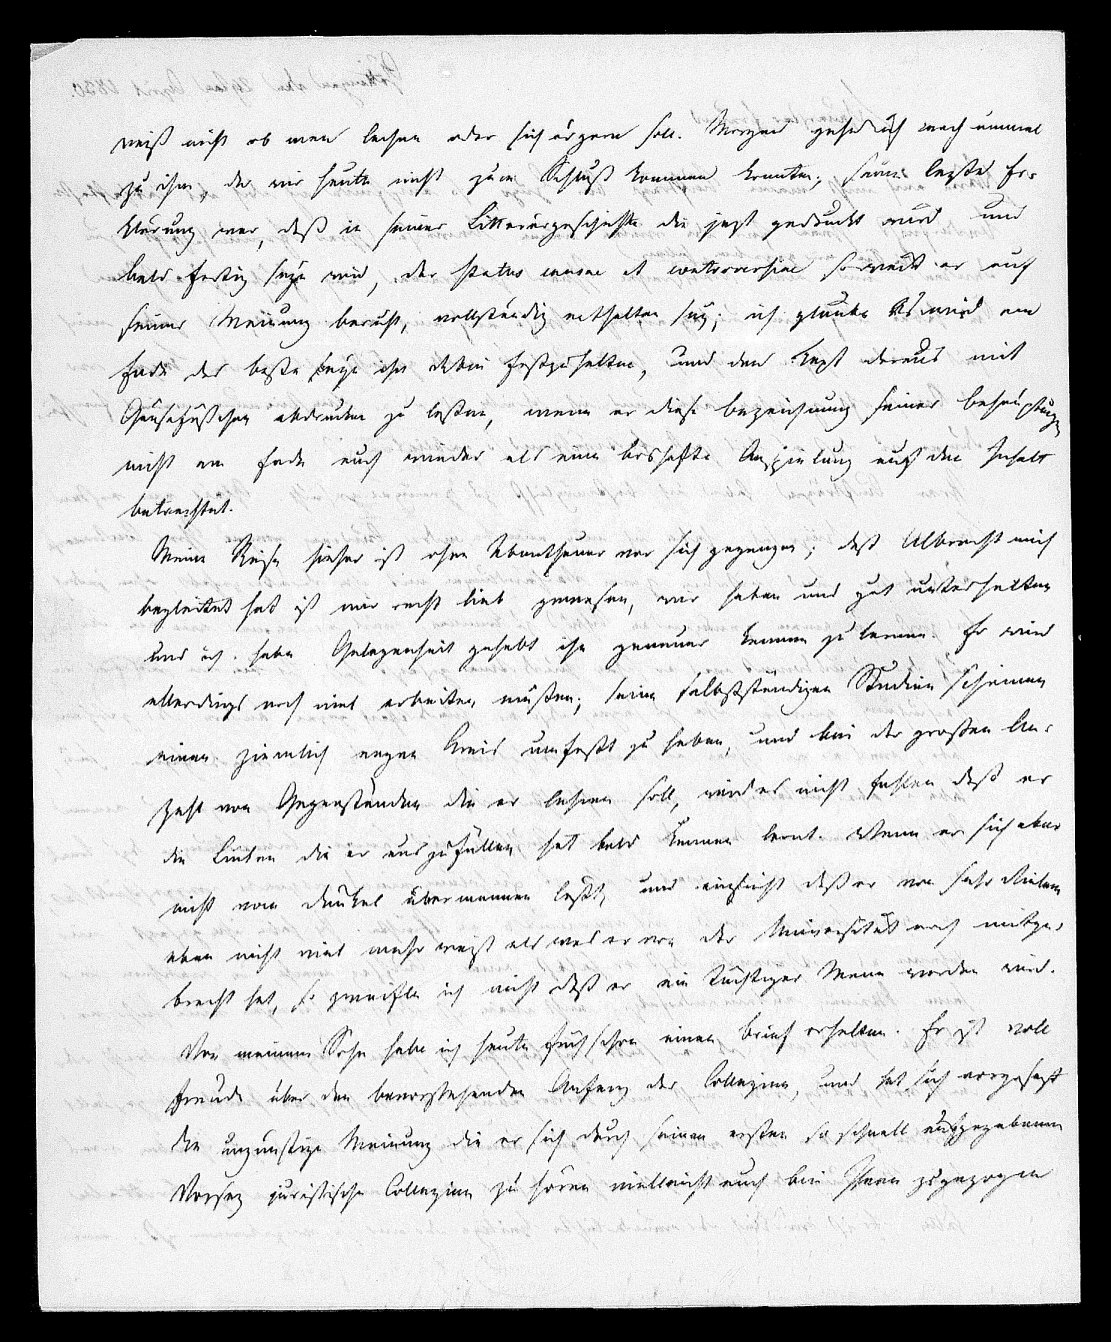 weiß nicht ob man lachen oder sich ärgern soll. Morgen gehe ich noch einmal
zu ihm, da wir heute nicht zum Schluß kommen konnten; seine lezte Er-
klärung war, daß in seiner Litterärgeschichte die jezt gedruckt wird und
bald fertig seyn wird, der status causae et controversiae so weit er auf
seiner Meinung beruht, vollständig enthalten sey; ich glaube es wird am
Ende das beste seyn ihn dabei festzuhalten, und den Text daraus mit
Gänsefüßchen abdrucken zu laßen, wenn er diese bezeichnung seiner behauptungen
nicht am Ende auch wieder als eine boshafte Anspielung auf den Inhalt
betrachtet.
Meine Reise hieher ist ohne Abentheuer vor sich gegangen; daß Albrecht mich
begleitet hat ist mir recht lieb gewesen, wir haben uns gut unterhalten
und ich habe Gelegenheit gehabt ihn genauer kennen zu lernen. Er wird
allerdings noch viel arbeiten müßen; seine selbstständigen Studien scheinen
einen ziemlich engen Kreis umfaßt zu haben, und bei der großen An-
zahl von Gegenständen die er lehren soll, wird es nicht fehlen daß er
die Lücken die er auszufüllen hat bald kennen lernt. Wenn er sich aber
nicht vom Dünkel übermannen läßt, und einsieht daß er von sehr Vielem
eben nicht viel mehr weiß als was er von der Universität noch mitge-
bracht hat, so zweifle ich nicht daß er ein tüchtiger Mann werden wird.
Von meinem Sohn habe ich heute früh schon einen brief erhalten. Er ist voll
Freude über den bevorstehenden Anfang der Collegien, und hat sich vorgesezt
die ungünstige Meinung die er sich durch seinen ersten so schnell aufgegebenen
Vorsaz juristische Collegien zu hören vielleicht auch bei Ihnen zugezogen